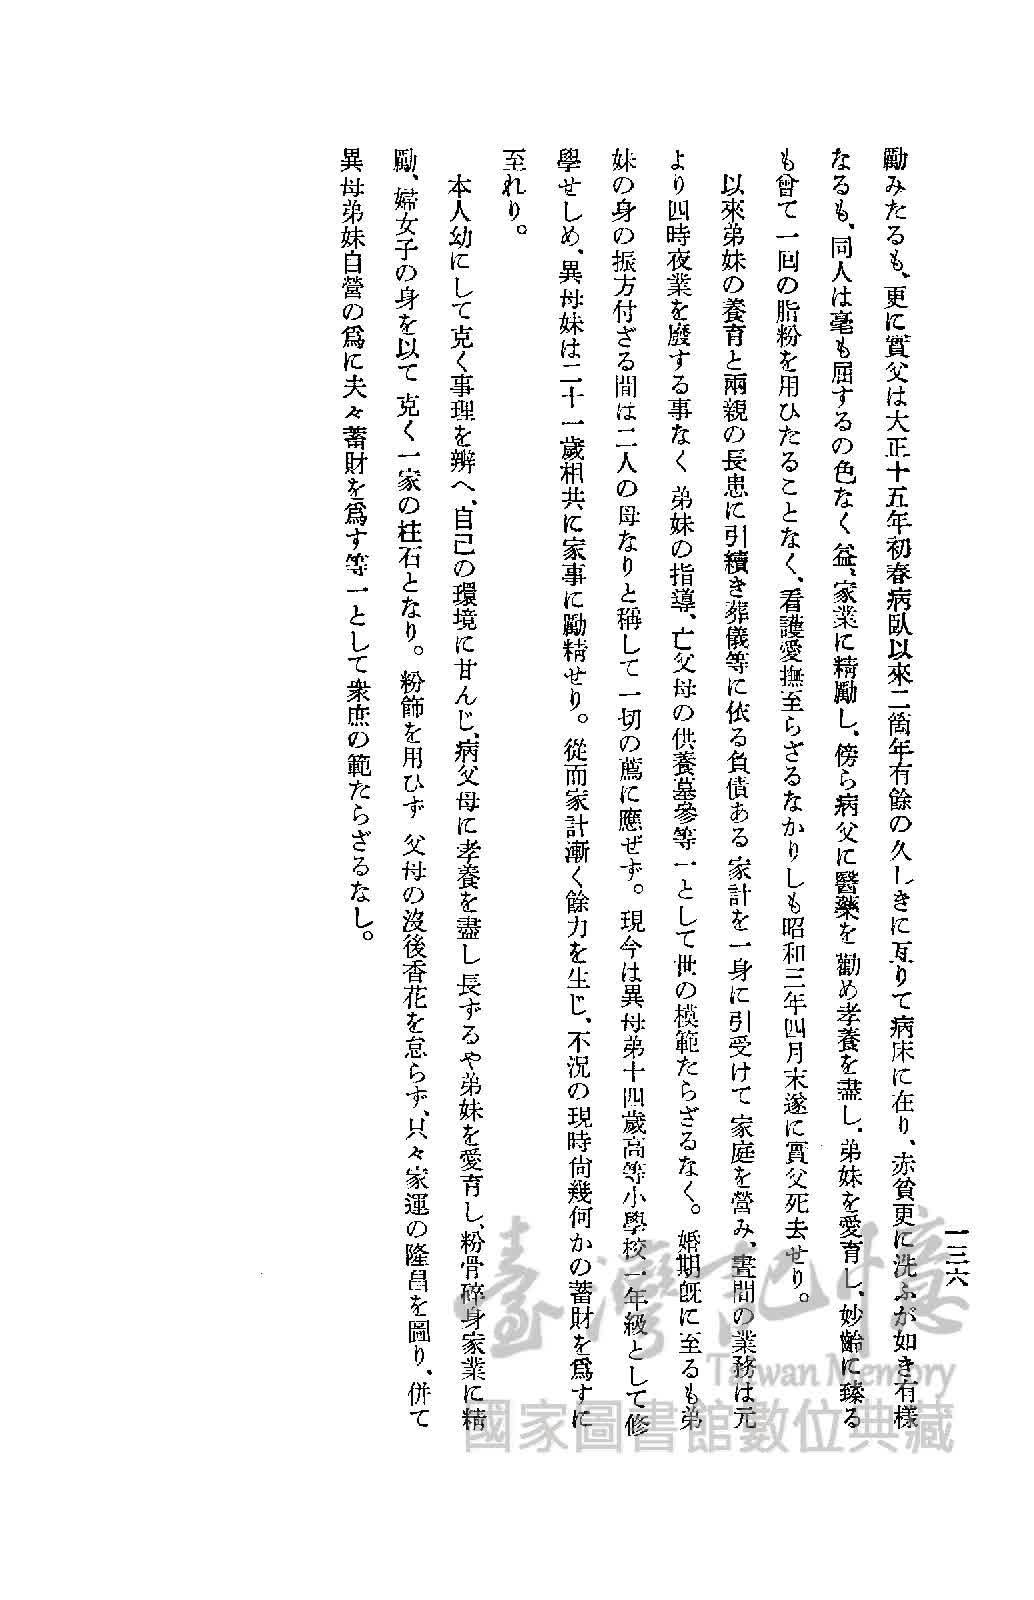 一三六
勵みたるも、更に實父は大正十五年初春病臥以來二箇年有餘の久しきに亙りて病床に在り、赤貧更に洗ふが如き有樣
なるも、同人は毫も屈するの色なく益、家業に精勵し、傍ら病父に醫藥を勸め孝養を盡し、弟妹を愛育し、妙齡に臻る
も曾て一回の脂粉を用ひたることなく、看護愛撫至らざるなかりしも昭和三年四月末遂に實父死去せり。
以來弟妹の養育と兩親の長患に引續き葬儀等に依る負債ある家計を一身に引受けて家庭を營み、晝間の業務は元
より四時夜業を廢する事なく弟妹の指導、亡父母の供養墓參等一として世の模範たらざるなく。婚期旣に至るも弟
妹の身の振方付ざる間は二人の母なりと稱して一切の薦に應ぜず。現今は異母弟十四歲高等小學校一年級として修
學せしめ、異母妹は二十一歲相共に家事に勵精せり。從而家計漸く餘力を生じ、不況の現時尙幾何かの蓄財を爲すに
至れり。
本人幼にして克く事理を辨へ、自己の環境に甘んじ、病父母に孝養を盡し長ずるや弟妹を愛育し、粉骨碎身家業に精
勵、婦女子の身を以て克く一家の柱石となり。粉飾を用ひず父母の沒後香花を怠らず、只々家運の隆昌を圖り、併て
異母弟妹自營の爲に夫々蓄財を爲す等一として衆庶の範たらざるなし。
臺灣記憶
Taiwan Memory
國家圖書館數位典藏